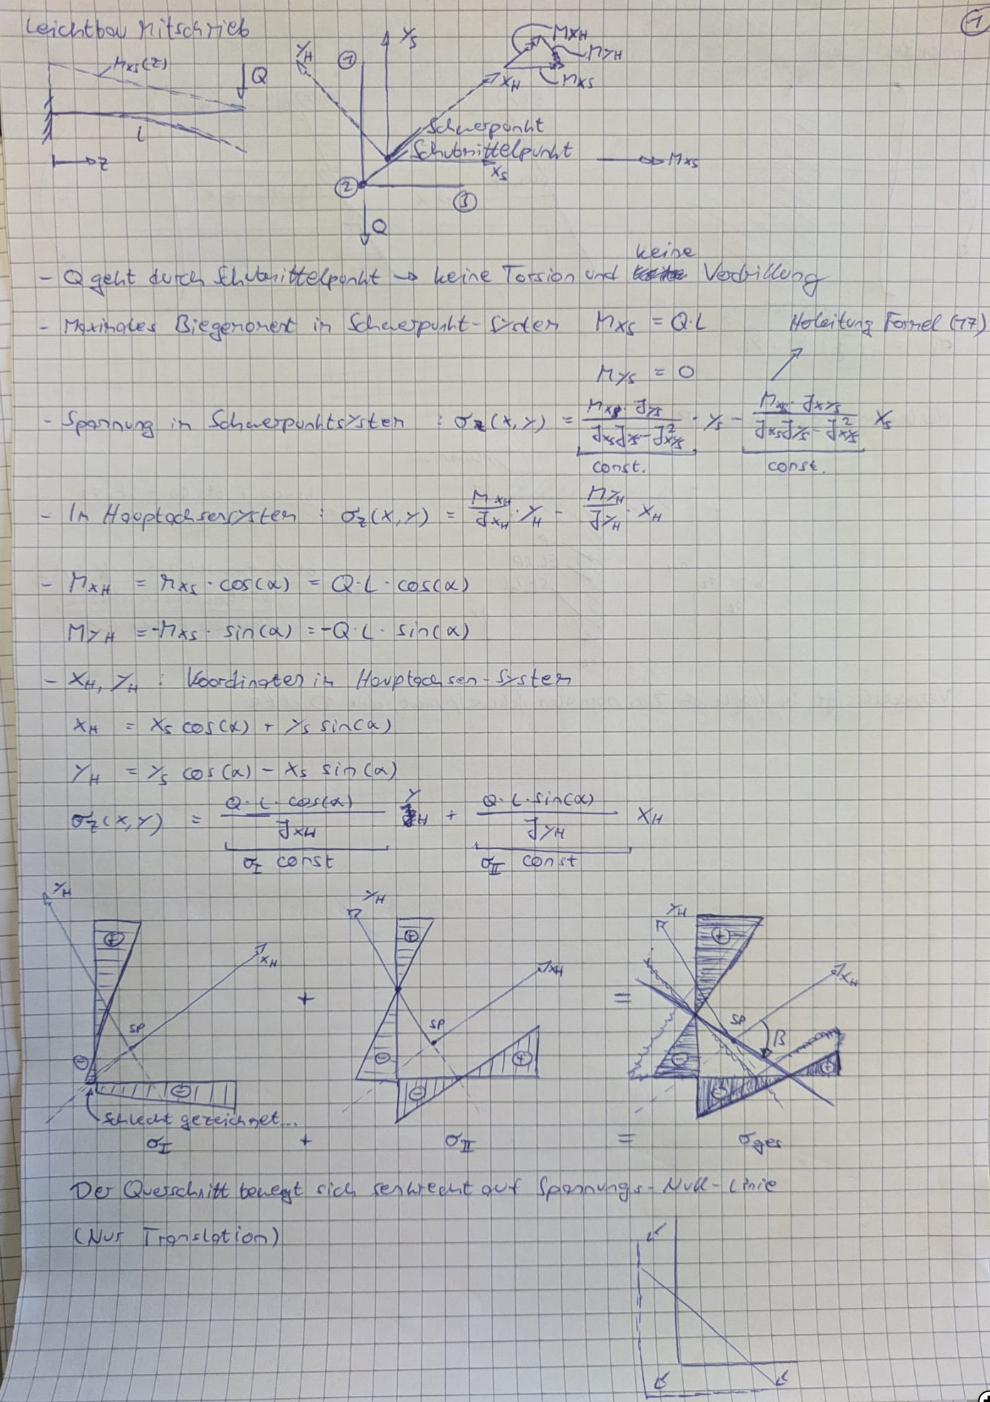 Leichtbau Mitschrieb
1
M_XS(z)
Q
L
z
Y_H
Y_S
1
2
3
X_H
M_XH
M_YH
M_XS
Schwerpunkt
Schubmittelpunkt
X_S
M_XS
Q
- Q geht durch Schubmittelpunkt → keine Torsion und keine Verdrillung
- Maximales Biegemoment in Schwerpunkt-System M_XS = Q·L
Herleitung Formel (17)
M_YS = 0
- Spannung in Schwerpunktsystem : σ_z(x,y) = (M_XS · J_YS)/(J_XS J_YS - J_XYS²) · Y_S - (M_XS · J_XYS)/(J_XS J_YS - J_XYS²) X_S
const. const.
- In Hauptachsensystem : σ_z(x,y) = M_XH/J_XH · Y_H - M_YH/J_YH · X_H
- M_XH = M_XS · cos(α) = Q·L · cos(α)
M_YH = -M_XS · sin(α) = -Q·L · sin(α)
- X_H, Y_H : Koordinaten in Hauptachsen-System
X_H = X_S cos(α) + Y_S sin(α)
Y_H = Y_S cos(α) - X_S sin(α)
σ_z(x,y) = (Q·L·cos(α))/J_XH Y_H + (Q·L·sin(α))/J_YH X_H
σ_I const σ_II const
Y_H
X_H
SP
+
-
-
Schlecht gezeichnet...
σ_I
+
Y_H
X_H
SP
+
-
-
+
σ_II
+
=
Y_H
X_H
SP
β
+
-
-
+
σ_ges
=
Der Querschnitt bewegt sich senkrecht auf Spannungs-Null-Linie
(Nur Translation)